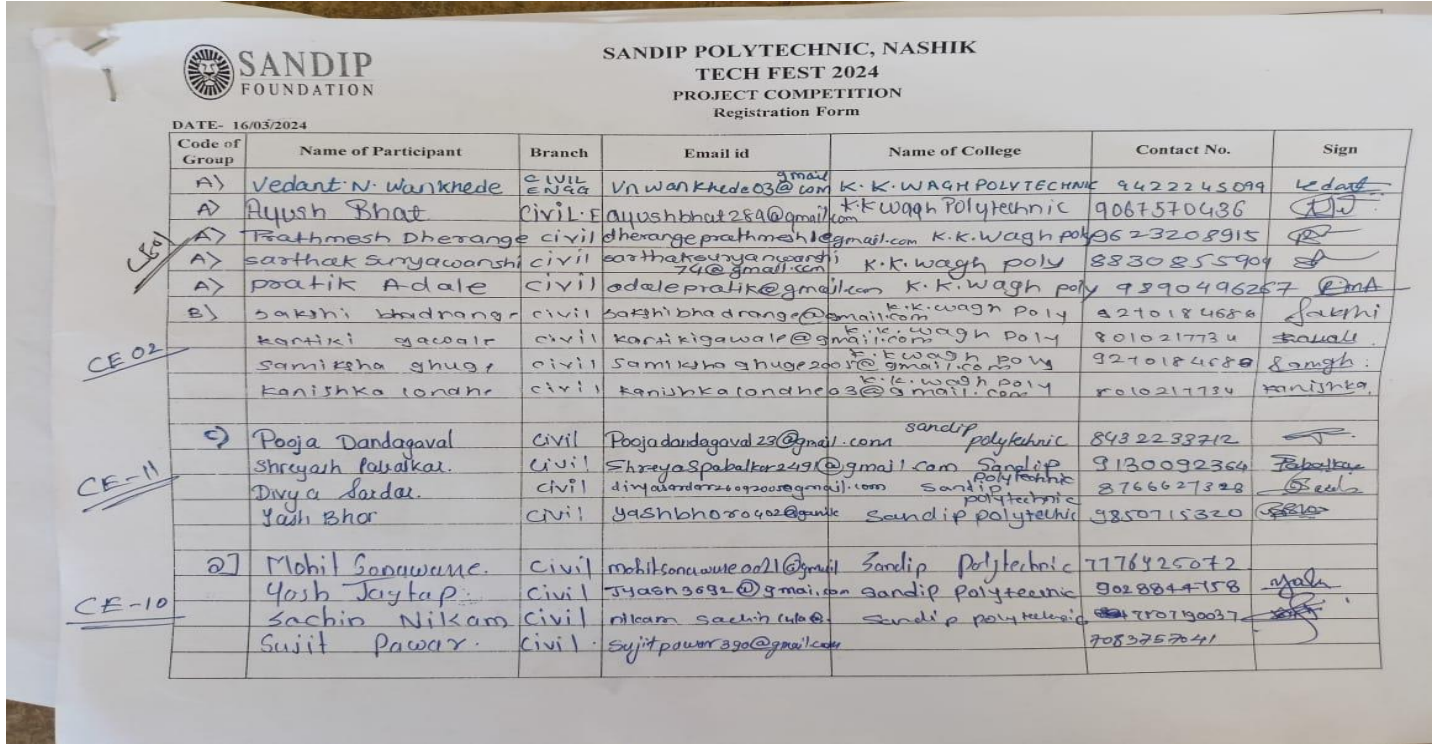 SANDIP
FOUNDATION
SANDIP POLYTECHNIC, NASHIK
TECH FEST 2024
PROJECT COMPETITION
Registration Form
DATE- 16/03/2024
Code of Group Name of Participant Branch Email id Name of College Contact No. Sign
A) Vedant N. Wankhede CIVIL ENGG Vnwankhede03@gmail.com K.K.WAGH POLYTECHNIC 9422245099 Vedant
A) Ayush Bhat Civil.E ayushbhat289@gmail.com K.K wagh Polytechnic 9067570436
A) Prathmesh Dherange civil dherangeprathmesh1@gmail.com K.K.Wagh poly 9623208915
A) sarthak suryawanshi civil sarthaksuryanwanshi74@gmail.com K.K.wagh poly 8830855909
A) pratik Adale civil adalepratik@gmail.com K.K.Wagh poly 9890496267
B) sakshi bhadrange civil sakshibhadrange@gmail.com K.K.wagh poly 9270184680 Sakshi
kartiki gawale civil kartikigawale@gmail.com K.K.wagh poly 8010217734
CE 02
samiksha ghuge civil samikshaghuge2005@gmail.com K.K wagh poly
kanishka londhe civil kanishkalondhe03@gmail.com K.K.wagh poly 8010217734 kanishka
c) Pooja Dandagaval civil Poojadandagaval23@gmail.com sandip polytechnic 8432233712
Shreyash Pabalkar. civil Shreyaspabalkar2491@gmail.com Sandip polytechnic 9130092364
CE-11
Divya Sardar. civil sandip polytechnic 8766627328
Yash Bhor civil yashbhor0402@ sandip polytechnic 9850715320
D] Mohit Sonawane. Civil mohitsonawane0021@gmail Sandip Polytechnic 7776425072
Yash Jaytap. Civil Jyash3692@gmai.com sandip polytecnic 9028844758 yash
CE-10
Sachin Nikam Civil nikam sachin sandip
Sujit Pawar. Civil. Sujitpawar390@gmail.com 7083757041